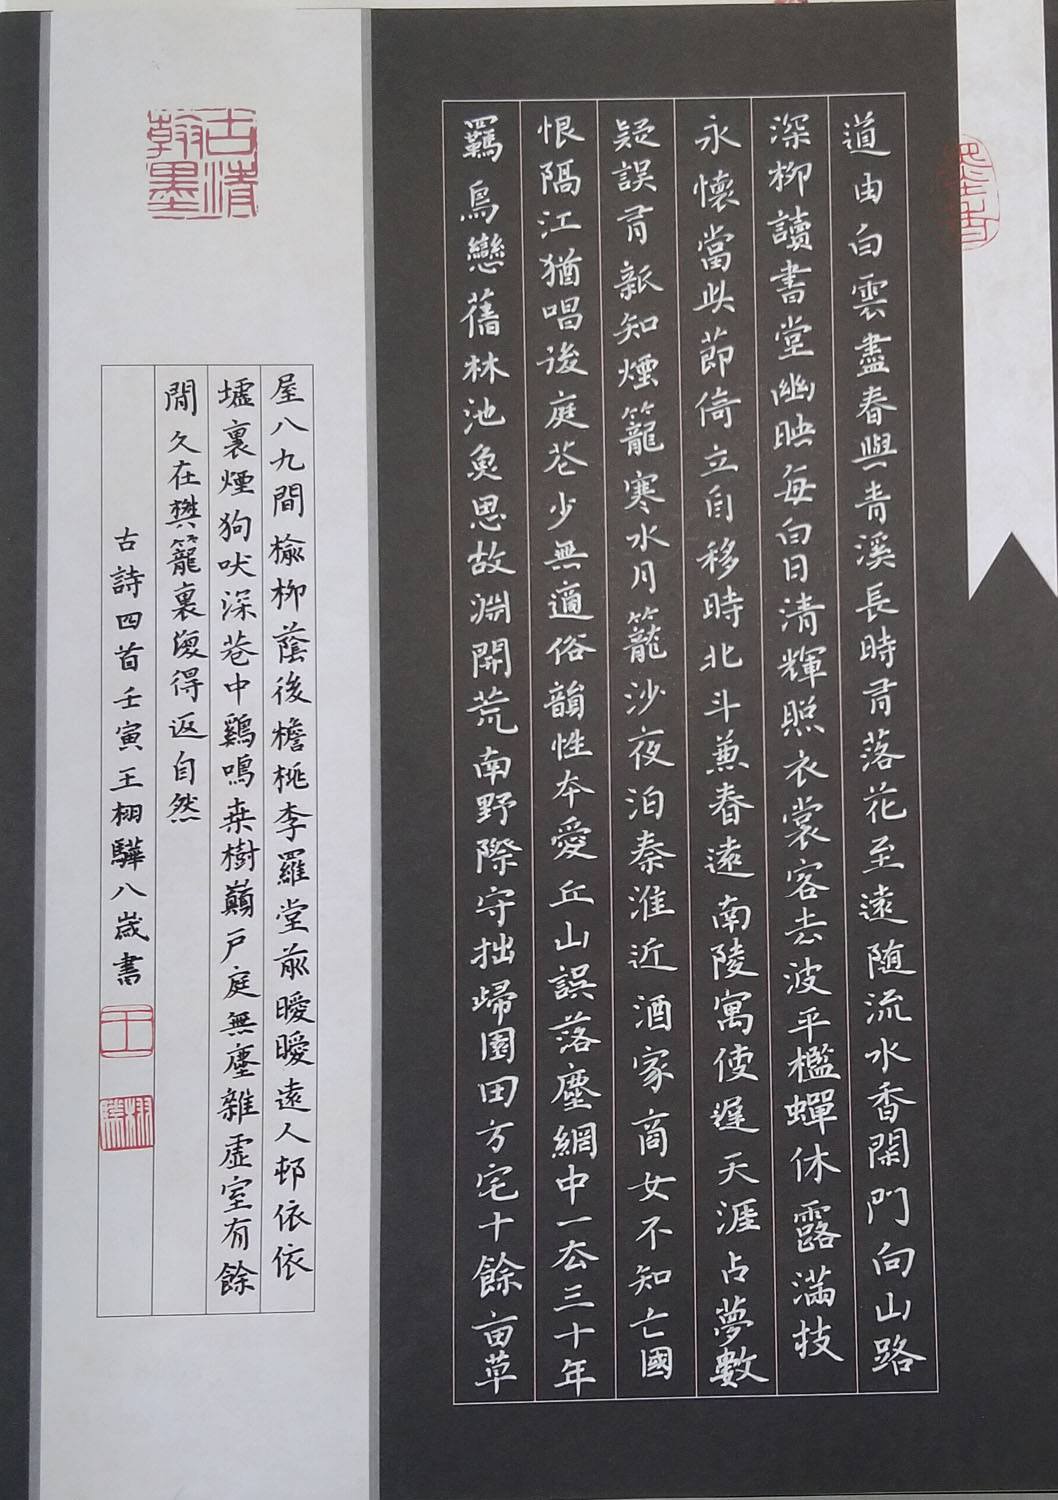 道由白雲盡春與青溪長時有落花至遠随流水香閑門向山路
深柳讀書堂幽映每白日清輝照衣裳客去波平檻蟬休露滿枝
永懷當此節倚立自移時北斗兼春遠南陵寓使遲天涯占夢數
疑誤有新知煙籠寒水月籠沙夜泊秦淮近酒家商女不知亡國
恨隔江猶唱後庭花少無適俗韻性本愛丘山誤落塵網中一去三十年
羈鳥戀舊林池魚思故淵開荒南野際守拙歸園田方宅十餘亩草
屋八九間榆柳蔭後檐桃李羅堂前曖曖遠人邨依依
墟裏煙狗吠深巷中鷄鳴桑樹巔戶庭無塵雜虛室有餘
閒久在樊籠裏復得返自然
古詩四首壬寅王栩驊八歲書
古清
翰墨
王
栩驊